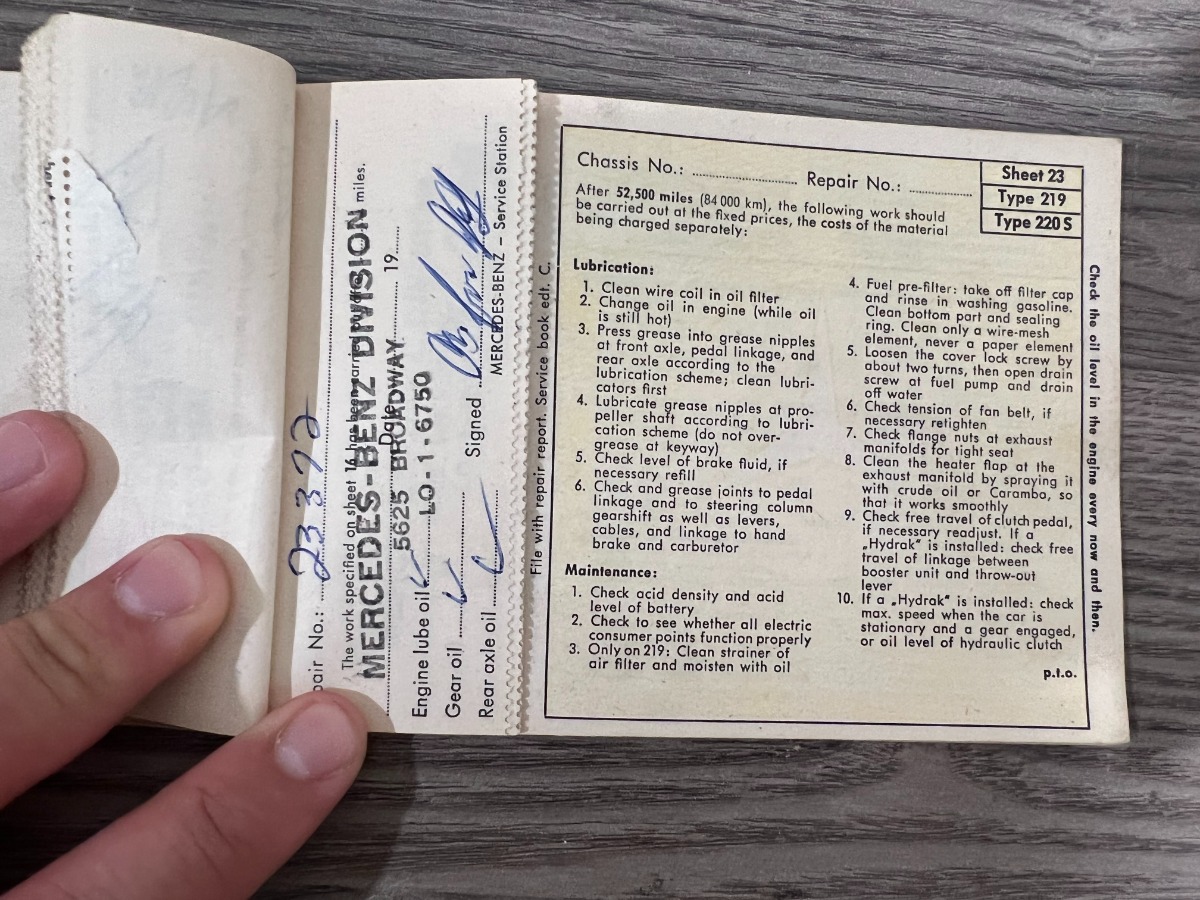 pair No.: 23372
The work specified on sheet miles.
MERCEDES-BENZ DIVISION
Date 19
5625 BROADWAY
LO-1-6750
Engine lube oil
Gear oil
Rear axle oil
Signed
MERCEDES-BENZ – Service Station
File with repair report. Service book edt. C.
Chassis No.: Repair No.:
Sheet 23
Type 219
Type 220 S
After 52,500 miles (84 000 km), the following work should
be carried out at the fixed prices, the costs of the material
being charged separately:
Lubrication:
1. Clean wire coil in oil filter
2. Change oil in engine (while oil
is still hot)
3. Press grease into grease nipples
at front axle, pedal linkage, and
rear axle according to the
lubrication scheme; clean lubri-
cators first
4. Lubricate grease nipples at pro-
peller shaft according to lubri-
cation scheme (do not over-
grease at keyway)
5. Check level of brake fluid, if
necessary refill
6. Check and grease joints to pedal
linkage and to steering column
gearshift as well as levers,
cables, and linkage to hand
brake and carburetor
Maintenance:
1. Check acid density and acid
level of battery
2. Check to see whether all electric
consumer points function properly
3. Only on 219: Clean strainer of
air filter and moisten with oil
4. Fuel pre-filter: take off filter cap
and rinse in washing gasoline.
Clean bottom part and sealing
ring. Clean only a wire-mesh
element, never a paper element
5. Loosen the cover lock screw by
about two turns, then open drain
screw at fuel pump and drain
off water
6. Check tension of fan belt, if
necessary retighten
7. Check flange nuts at exhaust
manifolds for tight seat
8. Clean the heater flap at the
exhaust manifold by spraying it
with crude oil or Caramba, so
that it works smoothly
9. Check free travel of clutch pedal,
if necessary readjust. If a
„Hydrak" is installed: check free
travel of linkage between
booster unit and throw-out
lever
10. If a „Hydrak" is installed: check
max. speed when the car is
stationary and a gear engaged,
or oil level of hydraulic clutch
p.t.o.
Check the oil level in the engine every now and then.